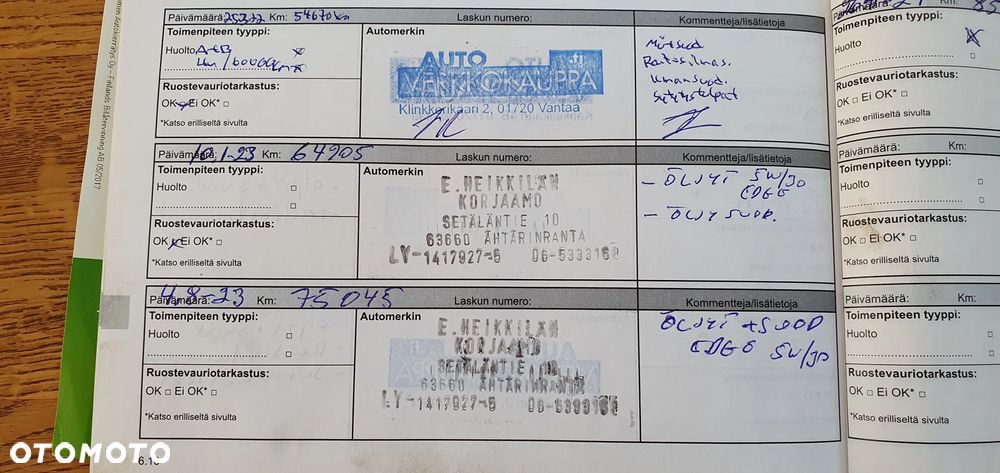 Päivämäärä: 25.3.22 Km: 54670 km Laskun numero: Kommentteja/lisätietoja
Toimenpiteen tyyppi: Automerkin
Huolto
AUTO
VERKKOKAUPPA
Klinkkerikaari 2, 01720 Vantaa
Ruostevauriotarkastus:
OK Ei OK*
*Katso erilliseltä sivulta
Päivämäärä: 10.1-23 Km: 64905 Laskun numero: Kommentteja/lisätietoja
Toimenpiteen tyyppi: Automerkin
Huolto
E.HEIKKILÄN
KORJAAMO
SETÄLÄNTIE, 10
63660 ÄHTÄRINRANTA
LY-1417927-5 06-5333168
- ÖLJYT 5W/30
EDGE
- ÖLJYSUOD.
Ruostevauriotarkastus:
OK Ei OK*
*Katso erilliseltä sivulta
Päivämäärä: 4.8-23 Km: 75045 Laskun numero: Kommentteja/lisätietoja
Toimenpiteen tyyppi: Automerkin
Huolto
E.HEIKKILÄN
KORJAAMO
SETÄLÄNTIE, 10
63660 ÄHTÄRINRANTA
LY-1417927-5
ÖLJYT + SUOD
EDGE 5W/30
Ruostevauriotarkastus:
OK Ei OK*
*Katso erilliseltä sivulta
Toimenpiteen tyyppi:
Huolto
Ruostevauriotarkastus:
OK Ei OK*
*Katso erilliseltä sivulta
Päivämäärä:
Toimenpiteen tyyppi:
Huolto
Ruostevauriotarkastus:
OK Ei OK*
*Katso erilliseltä sivulta
Päivämäärä: Km:
Toimenpiteen tyyppi:
Huolto
Ruostevauriotarkastus:
OK Ei OK*
*Katso erilliseltä sivulta
Autokierrätys Oy – Finlands Bilåtervinning AB 05/2017
OTOMOTO